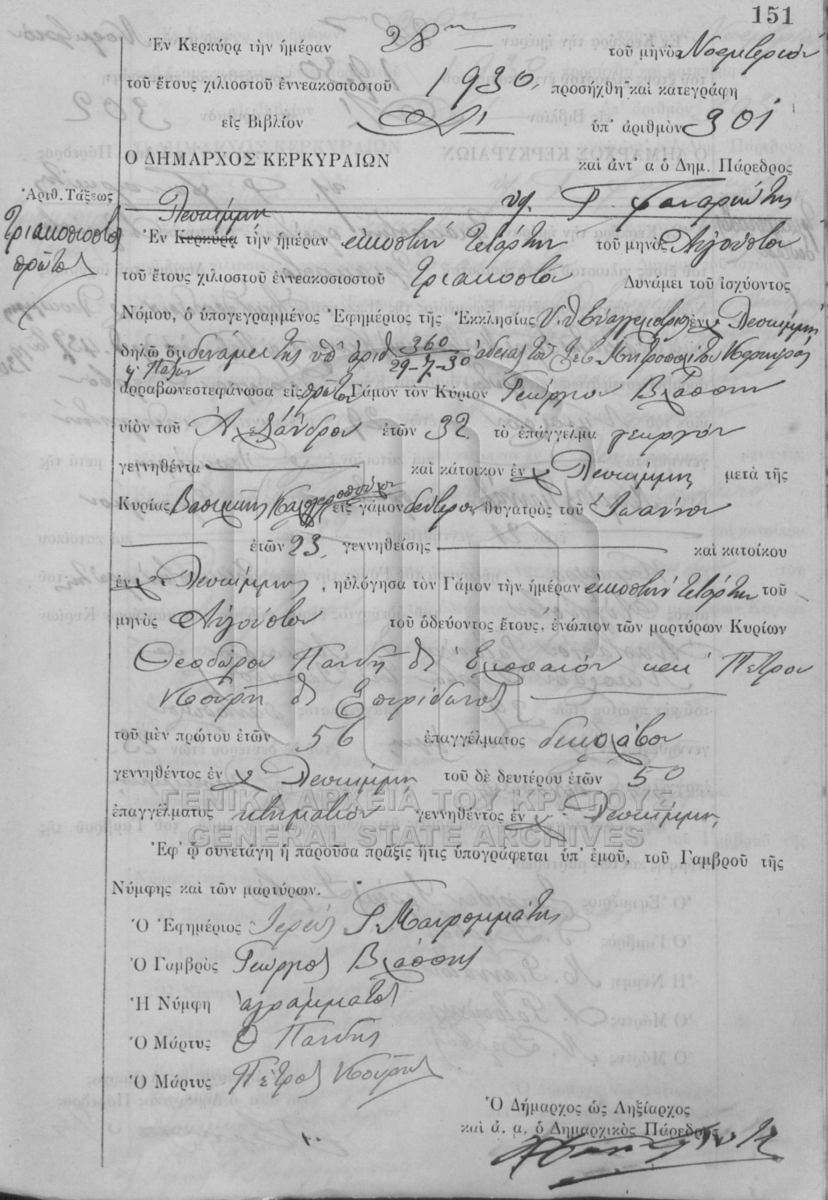 151
Ἐν Κερκύρᾳ τὴν ἡμέραν 28ην τοῦ μηνὸς Νοεμβρίου
τοῦ ἔτους χιλιοστοῦ ἐννεακοσιοστοῦ 1930 προσήχθη καὶ κατεγράφη
εἰς Βιβλίον Δ' ὑπ' ἀριθμὸν 301
Ο ΔΗΜΑΡΧΟΣ ΚΕΡΚΥΡΑΙΩΝ καὶ ἀντ' α ὁ Δημ. Πάρεδρος
Ἀριθ. Τάξεως
Τριακοσιοστὸν
πρῶτον
Λευκίμμῃ
Ἐν Κερκύρᾳ τῇ ἡμέραν εἰκοστὴν τετάρτην τοῦ μηνὸς Αὐγούστου
τοῦ ἔτους χιλιοστοῦ ἐννεακοσιοστοῦ τριακοστοῦ Δυνάμει τοῦ ἰσχύοντος
Νόμου, ὁ ὑπογεγραμμένος Ἐφημέριος τῆς Ἐκκλησίας ἐν Λευκίμμῃ
δηλῶ ὅτι δυνάμει τῆς ὑπ' ἀριθ 360 29-7-30 ἀδείας τοῦ Σεβ Μητροπολίτου Κερκύρας
ἠρραβωνεστεφάνωσα εἰς πρῶτον Γάμον τὸν Κύριον Γεώργιον Βλάσσην
υἱὸν τοῦ Ἀλεξάνδρου ἐτῶν 32 τὸ ἐπάγγελμα γεωργὸν
γεννηθέντα καὶ κάτοικον ἐν Λευκίμμῃ μετὰ τῆς
Κυρίας Βασιλικῆς Καλογεροπούλου εἰς γάμον δεύτερον θυγατρὸς τοῦ Ἰωάννου
ἐτῶν 23 γεννηθείσης καὶ κατοίκου
ἐν Λευκίμμης, ηὐλόγησα τὸν Γάμον τὴν ἡμέραν εἰκοστὴν τετάρτην τοῦ
μηνὸς Αὐγούστου τοῦ ὁδεύοντος ἔτους, ἐνώπιον τῶν μαρτύρων Κυρίων
Θεοδώρου Πανδῆ καὶ Πέτρου
Κουρῆ Σπυρίδωνος
τοῦ μὲν πρώτου ἐτῶν 56 ἐπαγγέλματος
γεννηθέντος ἐν Λευκίμμῃ τοῦ δὲ δευτέρου ἐτῶν 50
ἐπαγγέλματος κτηματίου γεννηθέντος ἐν Λευκίμμῃ
ΓΕΝΙΚΑ ΑΡΧΕΙΑ ΤΟΥ ΚΡΑΤΟΥΣ
GENERAL STATE ARCHIVES
Ἐφ' ᾧ συνετάγη ἡ παροῦσα πρᾶξις ἥτις ὑπογράφεται ὑπ' ἐμοῦ, τοῦ Γαμβροῦ τῆς
Νύμφης καὶ τῶν μαρτύρων.
Ὁ Ἐφημέριος Ἱερεὺς Γ. Μαυρομμάτης
Ὁ Γαμβρὸς Γεώργιος Βλάσσης
Ἡ Νύμφη ἀγράμματος
Ὁ Μάρτυς Θ Πανδης
Ὁ Μάρτυς Πέτρος Κουρῆς
Ὁ Δήμαρχος ὡς Ληξίαρχος
καὶ ἀ. α. ὁ Δημαρχικὸς Πάρεδρος